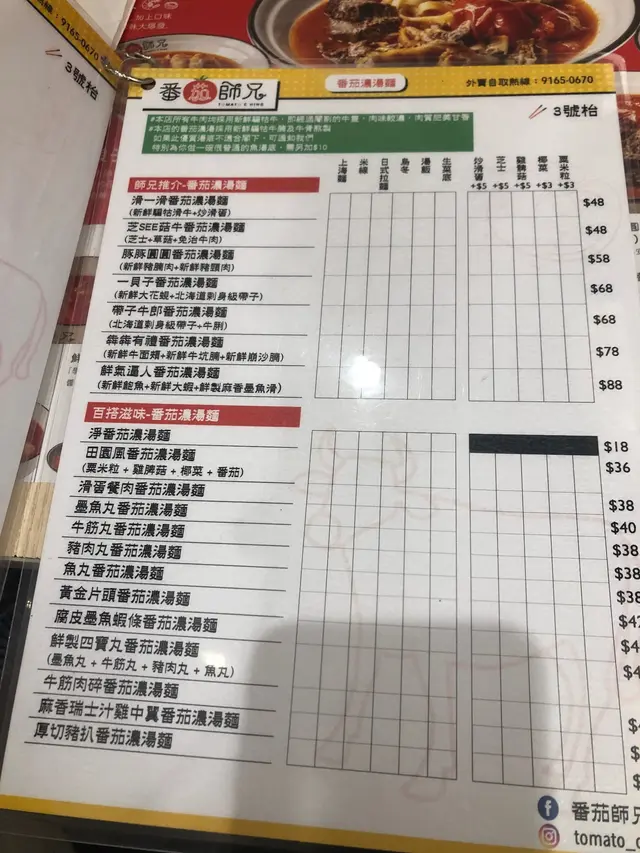 熱線：9165-0670
3號枱
番茄師兄
番茄濃湯麵
外賣自取熱線：9165-0670
3號枱
特別為你做一碗很普通的魚湯底，需另加$10
上海麵 米線 日式拉麵 烏冬 湯飯 生菜底 炒滑蛋+$5 芝士+$5 雞脾菇+$5 椰菜+$3 粟米粒+$3
師兄推介-番茄濃湯麵
滑一滑番茄濃湯麵 $48
(新鮮騸牯滑牛+炒滑蛋)
芝SEE菇牛番茄濃湯麵 $48
(芝士+草菇+免治牛肉)
豚豚圓圓番茄濃湯麵 $58
(新鮮豬腩肉+新鮮豬頸肉)
一貝子番茄濃湯麵 $68
(新鮮大花蝦+北海道刺身級帶子)
帶子牛郎番茄濃湯麵 $68
(北海道刺身級帶子+牛脷)
犇犇有禮番茄濃湯麵 $78
(新鮮牛面頰+新鮮牛坑腩+新鮮崩沙腩)
鮮氣逼人番茄濃湯麵 $88
(新鮮鮑魚+新鮮大蝦+鮮製麻香墨魚滑)
百搭滋味-番茄濃湯麵
淨番茄濃湯麵 $18
田園風番茄濃湯麵 $36
(粟米粒 + 雞脾菇 + 椰菜 + 番茄)
滑蛋餐肉番茄濃湯麵 $38
墨魚丸番茄濃湯麵 $40
牛筋丸番茄濃湯麵 $38
豬肉丸番茄濃湯麵 $38
魚丸番茄濃湯麵 $38
黃金片頭番茄濃湯麵
腐皮墨魚蝦條番茄濃湯麵
鮮製四寶丸番茄濃湯麵
(墨魚丸 + 牛筋丸 + 豬肉丸 + 魚丸)
牛筋肉碎番茄濃湯麵
麻香瑞士汁雞中翼番茄濃湯麵
厚切豬扒番茄濃湯麵
番茄師兄
tomato_